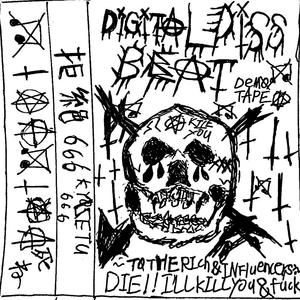 DiGiTAL DISS
BEAT
DemO
TAPE
YOU
TO THE RICH & INFLUENCERS
DIE!! ILL KILL YOU & fuck
拒絶 666
666
死